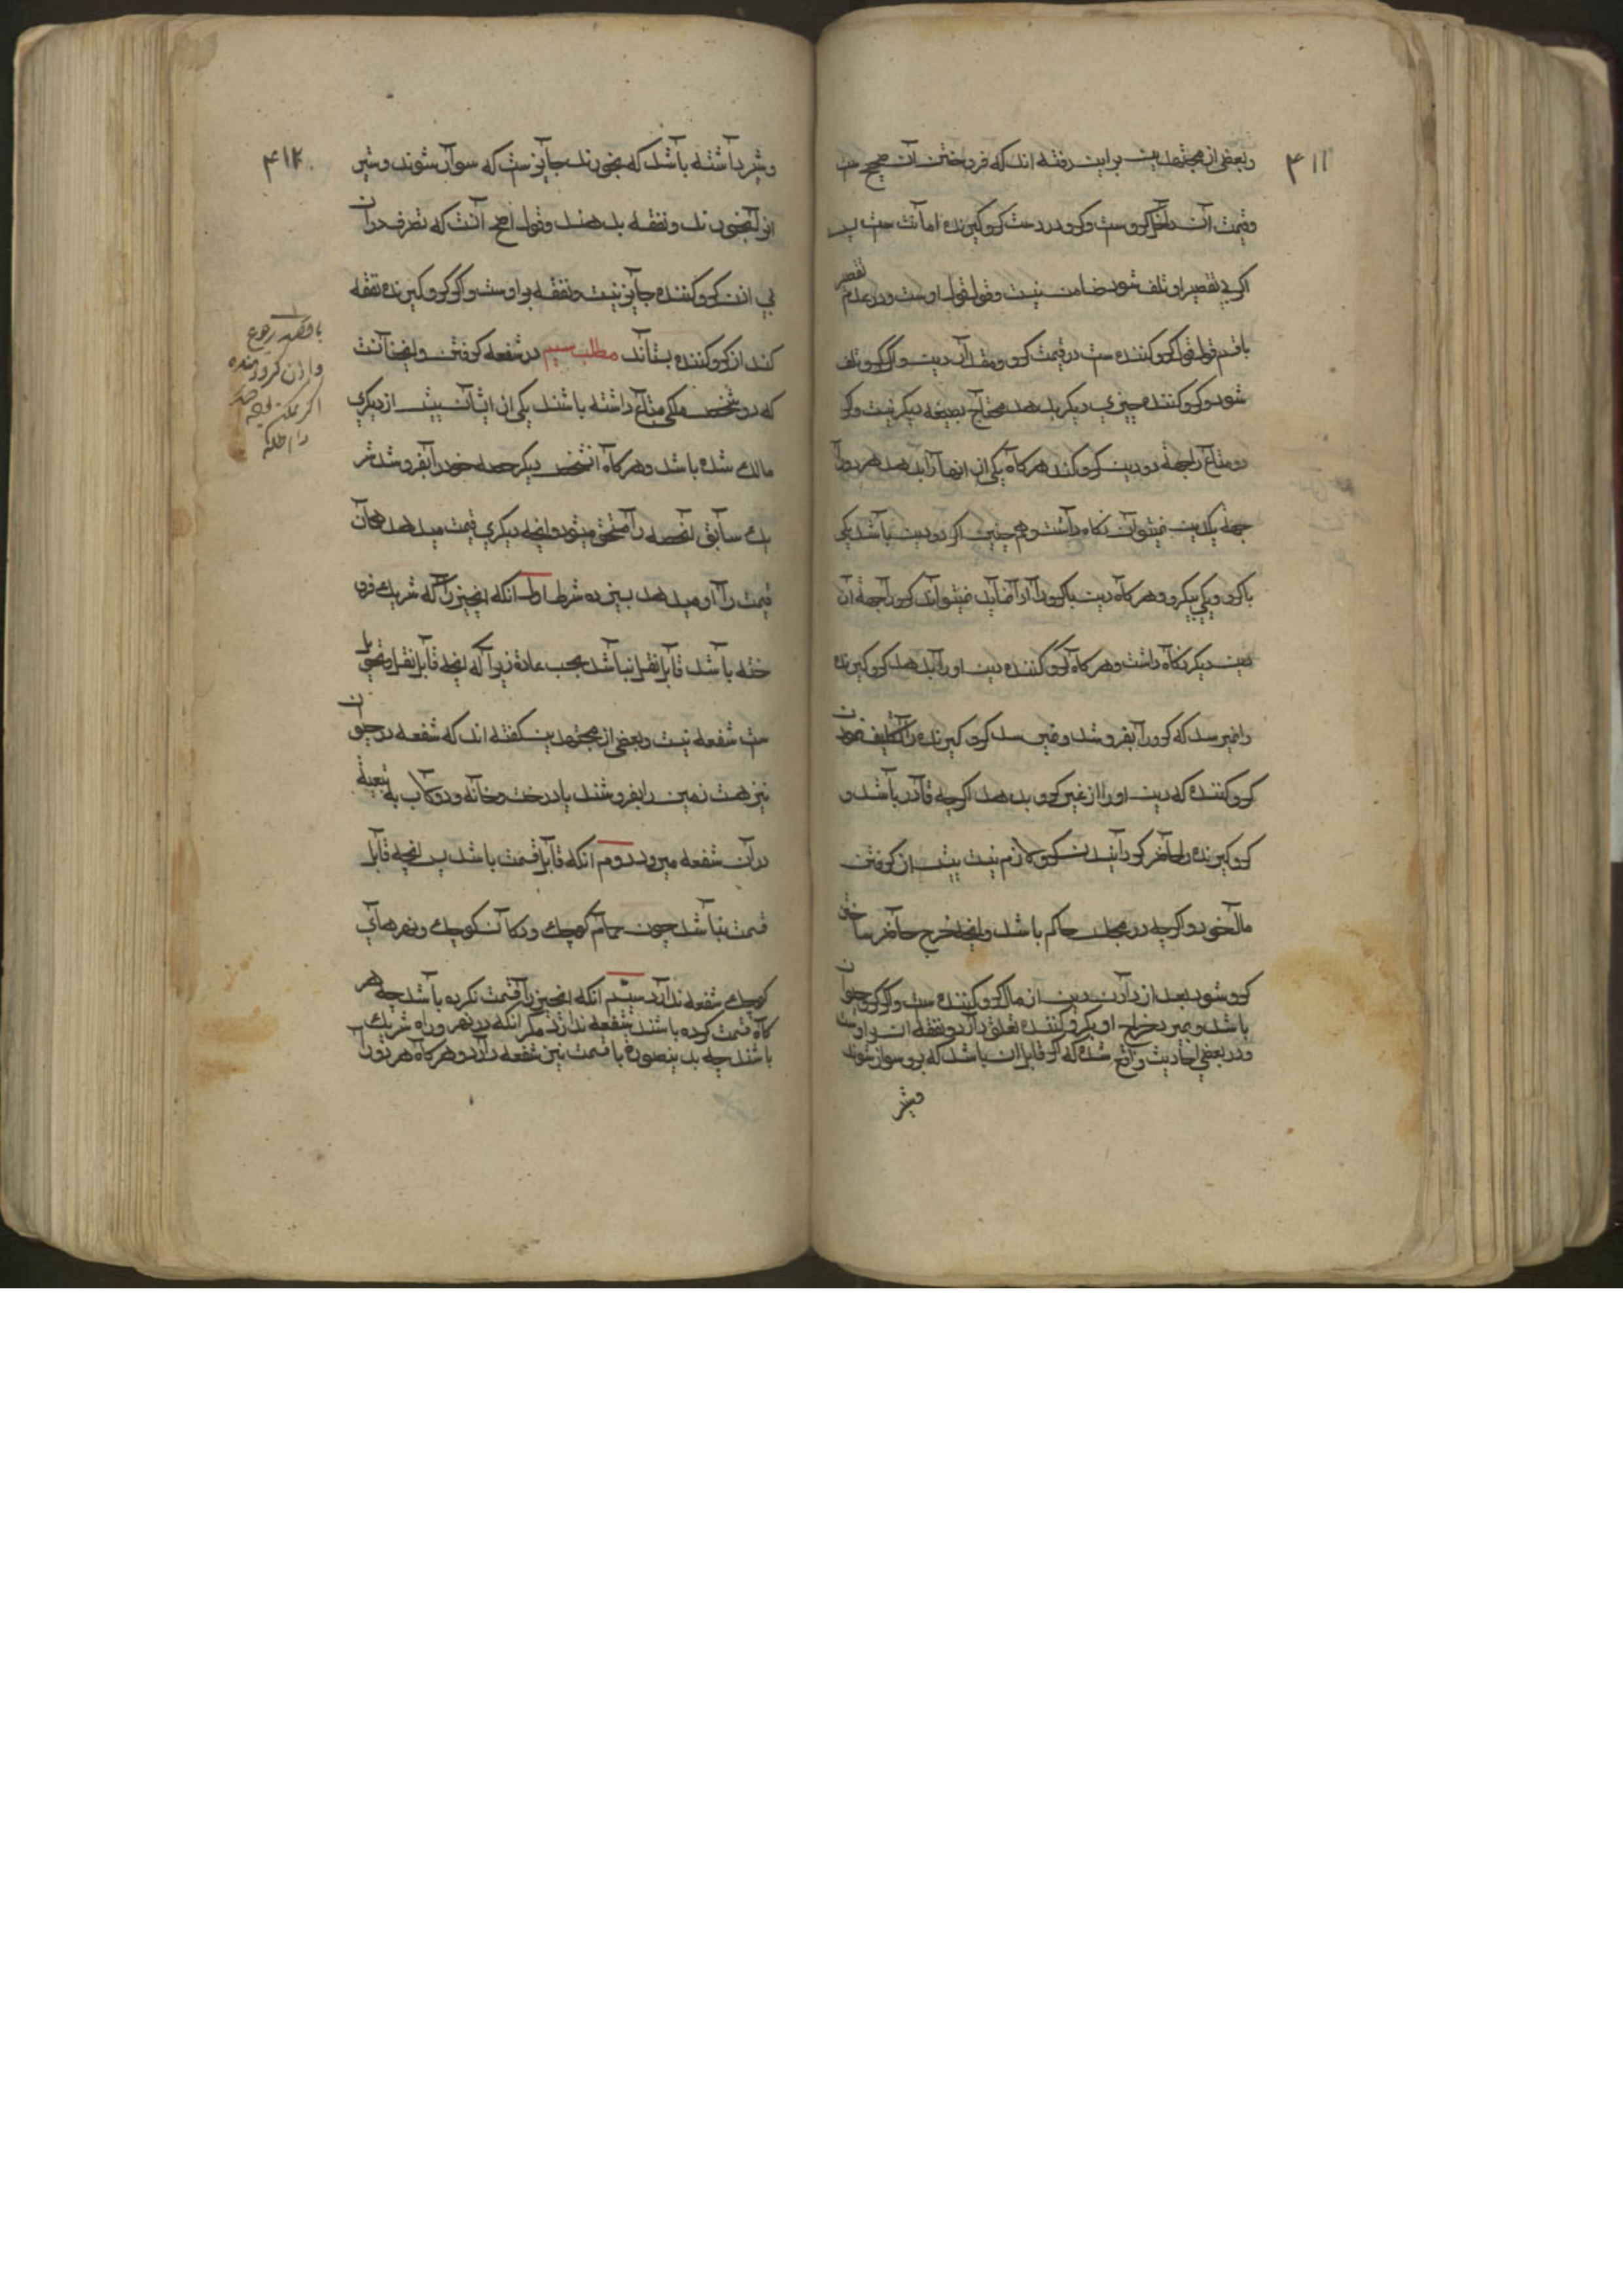 ۴۱۱
وبعضی از مجتهدین براین رفته اند که فروختن آن صحیح ست
وقیمت آن داخل کروست وکرو در دست کروکیرنده امانت ست پس
اکر بی تقصیر او تلف شود ضامن نیست وقول قول اوست در عدم تقصیر
باقسم وقول قول کروکننده ست در قیمت کرو ومقدار دین واکر کرو تلف
شود وکروکننده چیزی دیکر بدهد محتاج بصیغه دیکر نیست واکر
دو متاع را بجهة دو دین کرو کند هرکاه یکی از انها را بدهد هردو را
بجهة یکدین نمیتوان نکاه داشت وهم چنین اکر دو دین باشد یکی
باکرو ویکی بیکرو وهرکاه دین باکرو را ادا نماید نمیتواند کرو را بجهة آن
دین دیکر نکاه داشت وهرکاه کروکننده دین او را بدهد کروکیرنده
را نمیرسد که کرو را بفروشد ونمی رسد کروکیرنده را تکلیف نمودن
کروکننده که دین او را از غیر کرو بدهد اکرچه قادر باشد و
کروکیرنده را حاضر کردانیدن کرو لازم نیست پیش از کرفتن
مال خود واکرچه در مجلس حاکم باشد وانچه خرج حاضر ساختن
کرو شود بعد از دادن دین از مال کروکننده ست واکر کرو حیوان
باشد وبمیرد خراج او بکروکننده تعلق دارد ونفقه ان بر اوست
ودر بعضی احادیث واقع شده که اکر قابل ان باشد که برو سوار شوند
وشیر
۴۱۲
وشیر داشته باشد که بخورند جایز ست که سوار شوند وشیر
انرا بخورند ونفقه بدهند وقول اصح آنست که تصرف در ان
بی اذن کروکننده جایز نیست ونفقه بر اوست واکر کروکیرنده نفقه
کند از کروکننده بستاند مطلب سیم در شفعه کرفتن وان چنانست
که دو شخص ملکی مشاع داشته باشند یکی از ایشان پیش از دیکری
مالک شده باشد وهرکاه انشخص دیکر حصه خود را بفروشد شر
یک سابق انحصه را مستحق میشود وانچه دیکری قیمت میدهد همان
قیمت را او میدهد بسیزده شرط اول انکه انچیز را که شریک فرو
خته باشد قابل نقل نباشد بحسب عادة زیرا که انچه قابل نقل وتحویل
ست شفعه نیست وبعضی از مجتهدین کفته اند که شفعه در حیوان
نیز هست زمین را بفروشند با درخت وخانه ودوکاب به تبعیة
در آن شفعه میرود دوم انکه قابل قسمت باشد پس انچه قابل
قسمت نباشد چون حمام کوچک ودکان کوچک ونهرهای
کوچک شفعه ندارد سیم انکه انچیز را قسمت نکرده باشد چه هر
کاه قسمت کرده باشند شفعه ندارد مکر انکه در نهر وراه شریک
باشند چه بدینصورة با قسمت نیز شفعه دارد وهرکاه هر دو را
با قصد رجوع
واذن کرو کننده
اکر ممکن